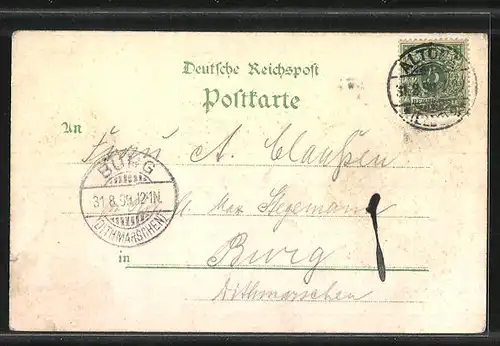 Deutsche Reichspost
Postkarte
ALTONA
31.8.99
5
An
A. Claussen
BURG
31.8.99.12-1N.
(DITHMARSCHEN)
Max Stegemann
in Burg
Dithmarschen